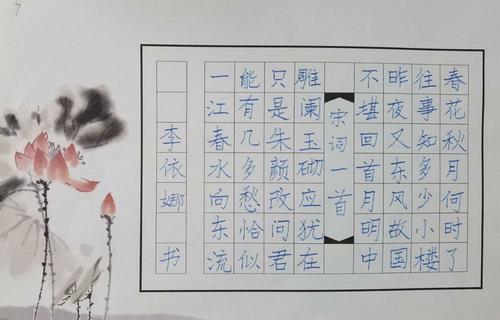 春花秋月何时了
往事知多少小楼
昨夜又东风故国
不堪回首月明中
宋词一首
雕阑玉砌应犹在
只是朱颜改问君
能有几多愁恰似
一江春水向东流
李依娜 书